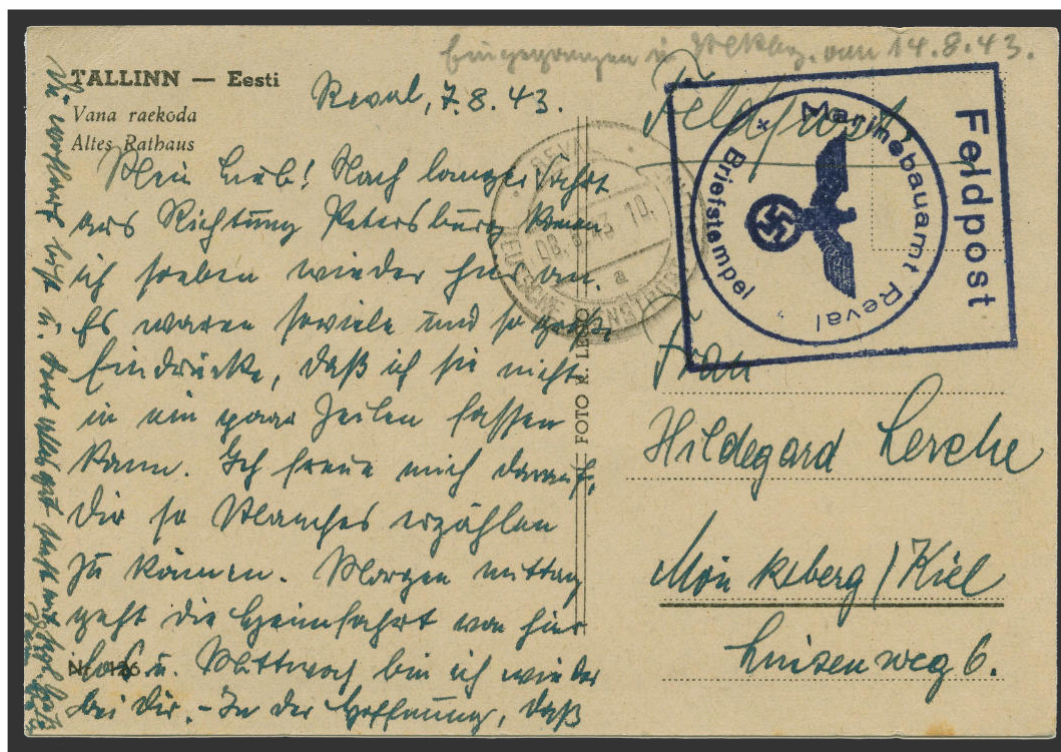 Eingegangen in Mkbg. am 14.8.43.
TALLINN — Eesti
Vana raekoda
Altes Rathaus
Reval, 7.8.43.
Mein Lieb! Nach langer Fahrt
aus Richtung Petersburg kam
ich soeben wieder hier an.
Es waren soviele und so große
Eindrücke, daß ich sie nicht
in ein paar Zeilen fassen
kann. Ich freue mich darauf,
Dir so Manches erzählen
zu können. Morgen mittag
geht die Heimfahrt von hier
los u. Mittwoch bin ich wieder
bei Dir. - In der Hoffnung, daß
Du wohlauf bist u.
Nr. 186
FOTO K. LEGO
Feldpost
REVAL
08.8.43 10.
a
DEUTSCHE DIENSTPOST
Feldpost
Marinebauamt Reval
* Briefstempel
Frau
Hildegard Lerche
Mönkeberg / Kiel
Luisenweg 6.